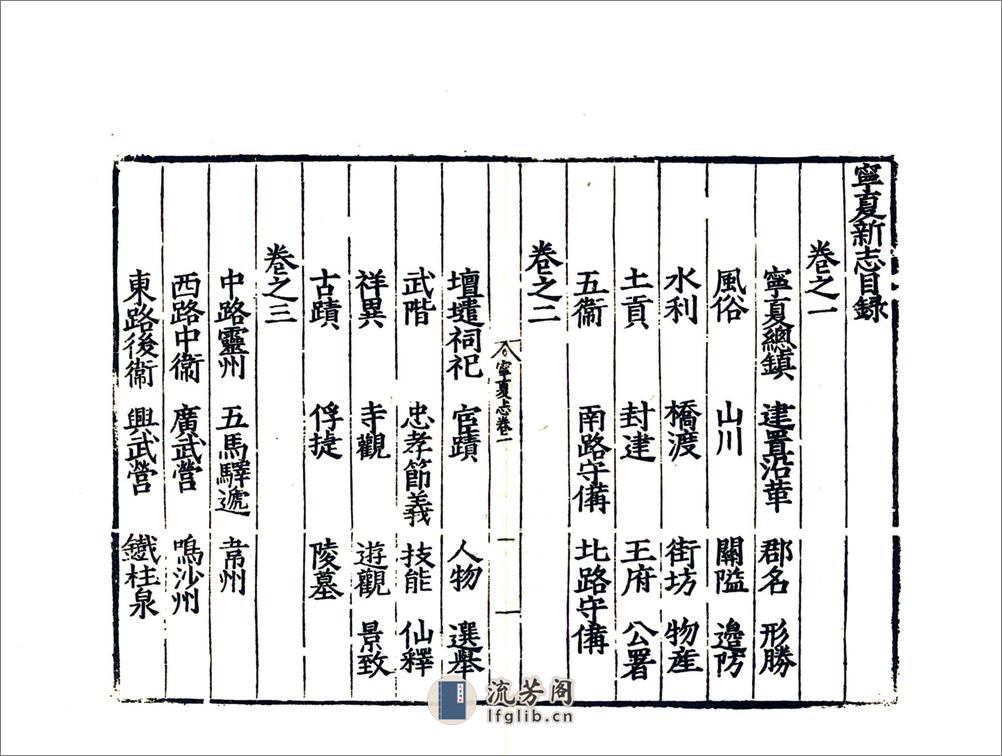 寧夏新志目録
卷之一
寧夏總鎮 建置沿革 郡名 形勝
風俗 山川 關隘 邊防
水利 橋渡 街坊 物產
土貢 封建 王府 公署
五衞 南路守備 北路守備
卷之二
寧夏志卷一 一
壇壝祠祀 宦蹟 人物 選舉
武階 忠孝節義 技能 仙釋
祥異 寺觀 遊觀 景致
古蹟 俘捷 陵墓
卷之三
中路靈州 五馬驛遞 韋州
西路中衞 廣武營 鳴沙州
東路後衞 興武營 鐵柱泉
流芳阁
lfglib.cn